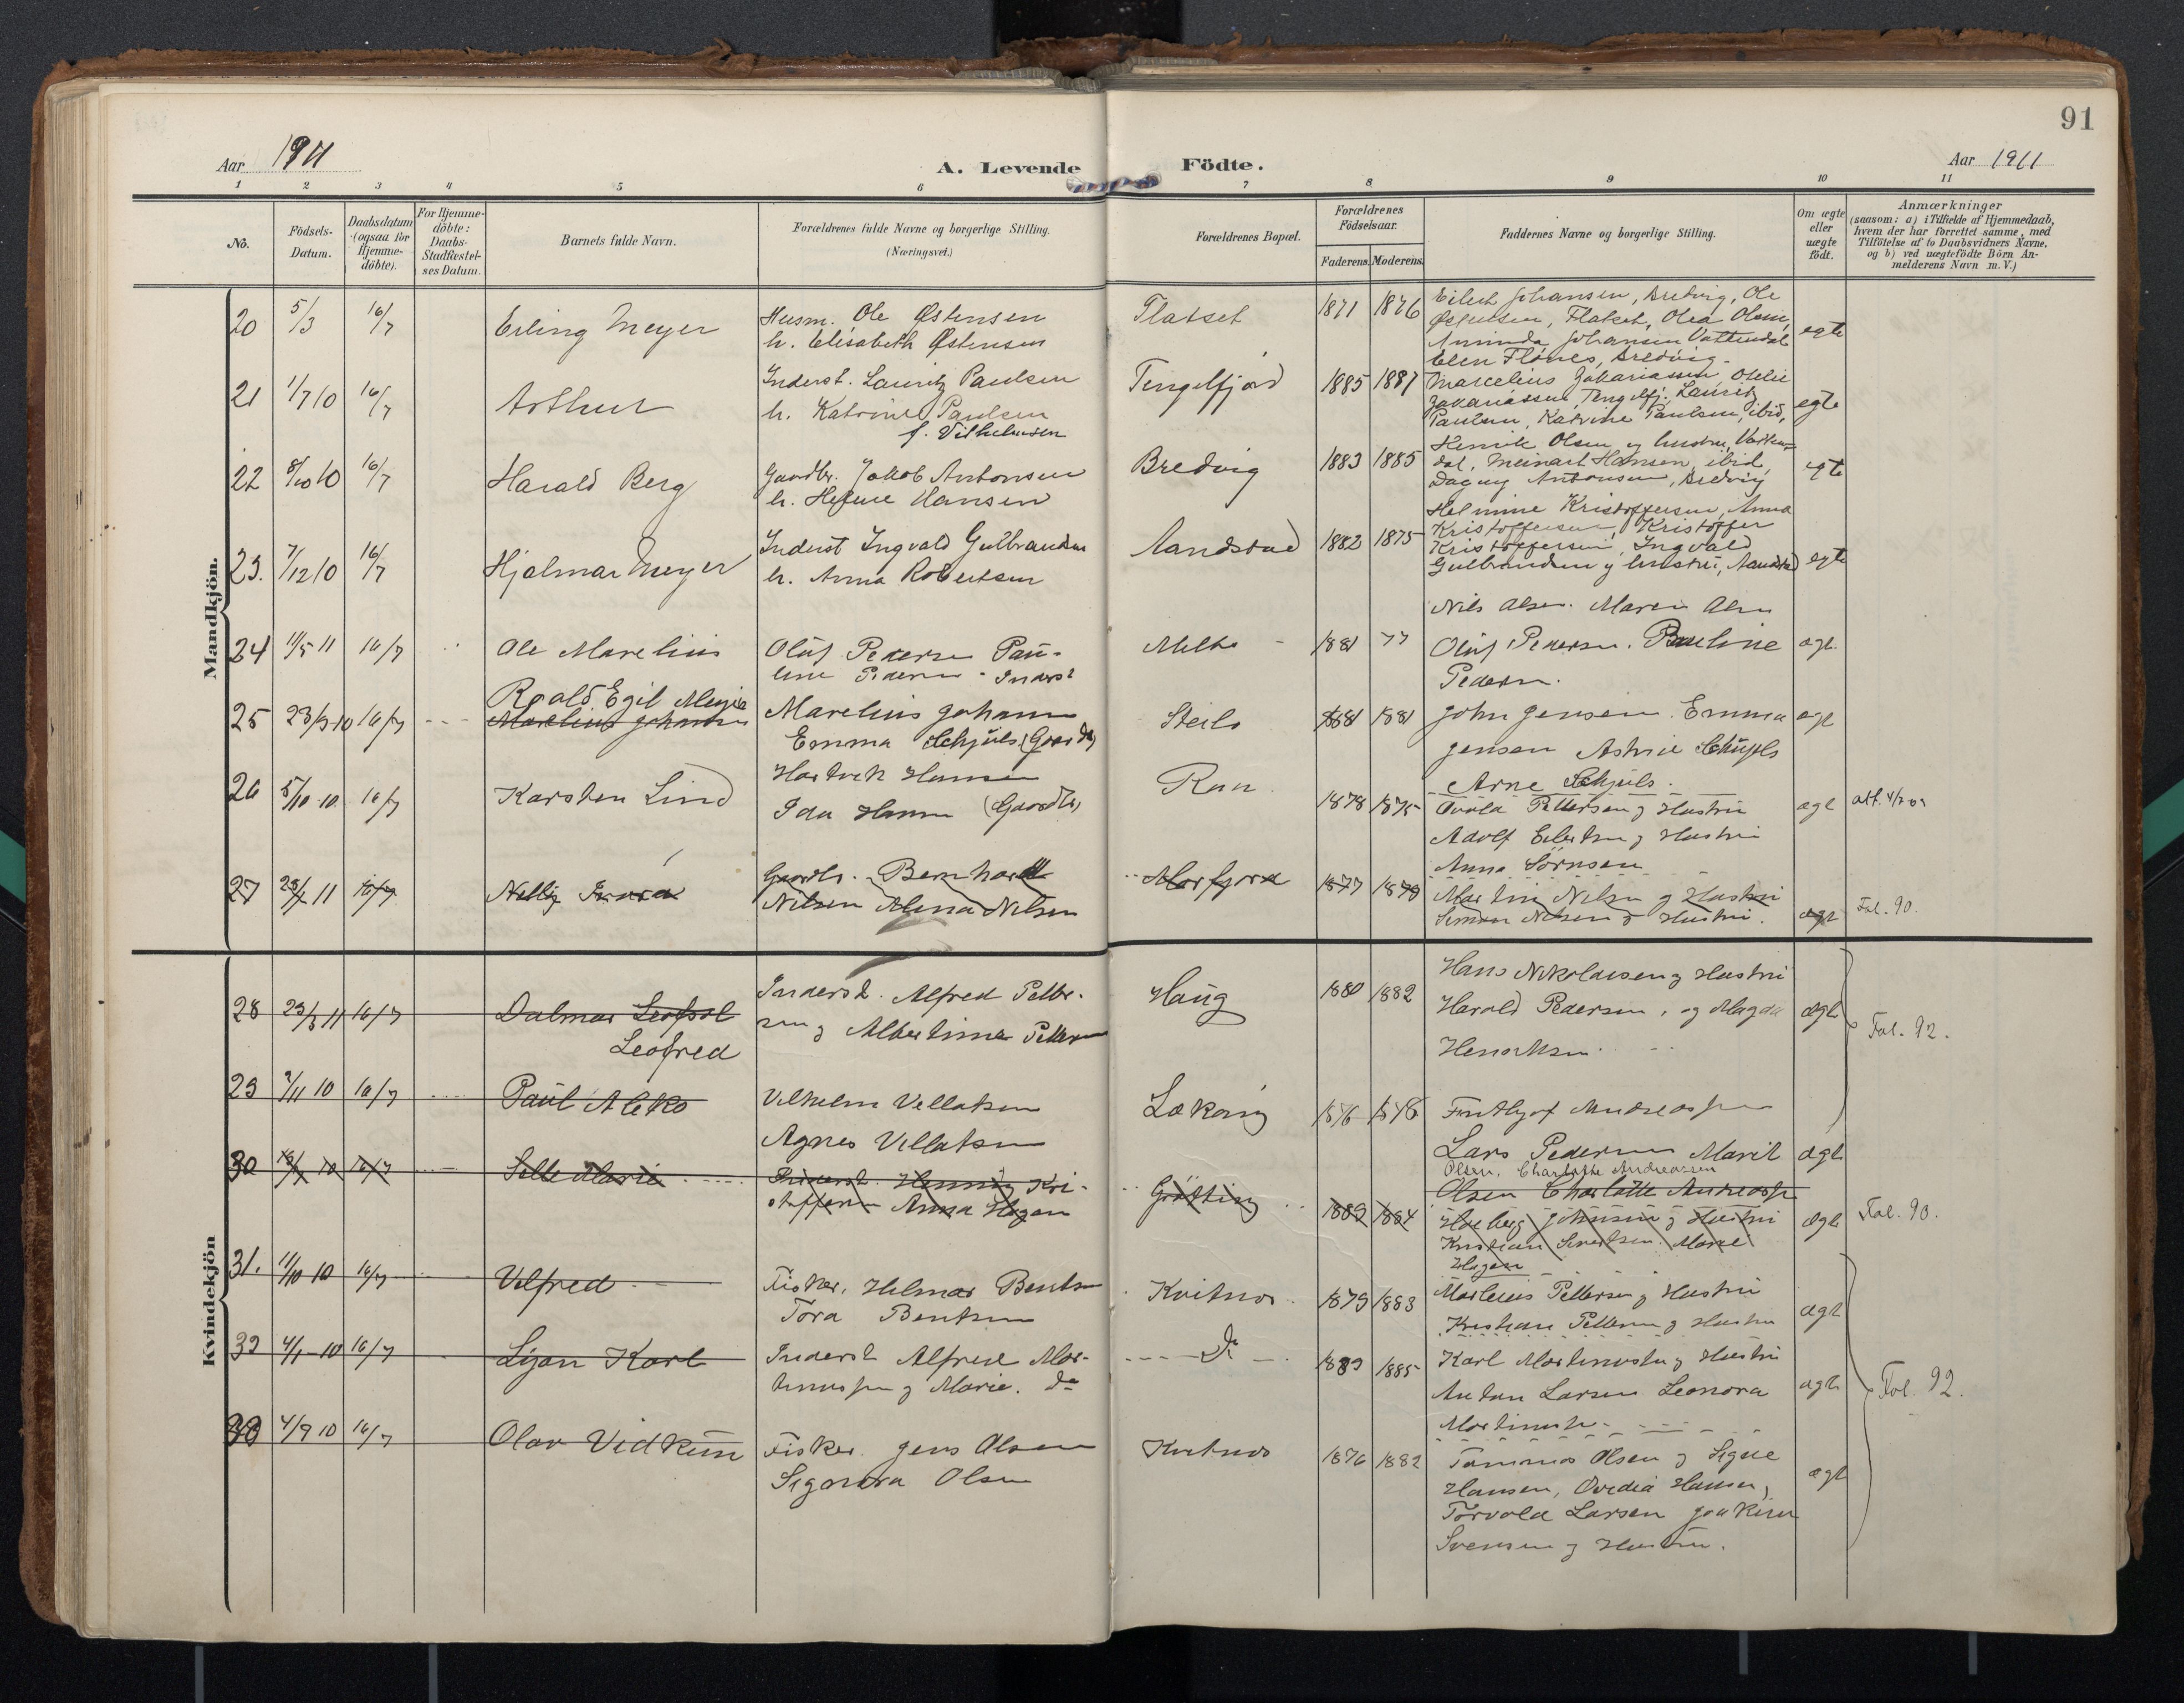 91
Aar 1911
A. Levende Födte.
Aar 1911
1 2 3 4 5 6 7 8 9 10 11
No.
Födsels-Datum.
Daabsdatum (ogsaa for Hjemme-döbte).
For Hjemme-döbte: Daabs-Stadfestel-ses Datum.
Barnets fulde Navn.
Forældrenes fulde Navne og borgerlige Stilling.
(Næringsvei.)
Forældrenes Bopæl.
Forældrenes Födselsaar.
Faderens. Moderens.
Faddernes Navne og borgerlige Stilling.
Om ægte eller uægte födt.
Anmærkninger
(saasom: a) i Tilfælde af Hjemmedaab,
hvem der har forrettet samme, med
Tilföielse af to Daabsvidners Navne,
og b) ved uægtefödte Börn An-
melderens Navn m. V.)
Mandkjön.
20 5/3 16/7 Erling Meyer
Husm. Ole Østensen
h. Elisabeth Østensen
Flatset 1871 1876
Johansen, Bredvig, Ole
Østensen, Flatset, Olea Olsen,
Johansen Vattendal
Flönes, Bredvig.
egte
21 1/7 10 16/7 Arthur
Inderst. Lauritz Paulsen
h. Katrine Paulsen
f. Vilhelmsen
Tengelfjord 1885 1887
Marcelius Zakariassen Otelie
Zakariassen, Tengelfj. Lauritz
Paulsen, Katrine Paulsen, ibid,
egte
22 8/10 10 16/7 Harald Berg
Gaardbr. Jakob Antonsen
h. Hansen
Bredvig 1883 1885
Henrik Olsen og hustru,Ватten-
dal, Meinart Hansen, ibid,
Dagny Antonsen, Bredvig
egte
23. 7/12 10 16/7 Hjalmar Meyer
Inderst Ingvald Gulbrandsen
h. Anna Robertsen
Sandstad 1882 1875
Helmine Kristoffersen, Anna
Kristoffersen, Kristoffer
Kristoffersen, Ingvald
Gulbrandsen og hustru, Sandstad
egte
24 11/5 11 16/7 Ole Marelius
Oluf Pedersen Pau-
line Pedersen Inderst
Melbo 1881 77
Nils Olsen. Maren Olsen
Oluf Pedersen. Pauline
Pedersen.
ægt.
25 23/3 10 16/7 Roald Egil Meyer
Marelius Johansen
Marelius Johansen
Emma Schjels (Gaardb)
Steilo 1881 1881
John Jensen. Emma
Jensen Schjels
Arne Schjels.
ægt
26 5/10 10 16/7 Karsten Lind
Hartvik Hansen
Ida Hansen (Gaardbr)
Ran 1878 1875
Pettersen og Hustru
Adolf Eilertsen og Hustru
Anna Sörnsen
ægt
27 11 16/7 Nelly
Gaardbr. Bernhard
Nilsen Alma Nilsen
Morfjord 1877 1879
Martin Nilsen og Hustru
Simon Nilsen og Hustru.
ægt Fol. 90.
Kvindekjön
28 23/3 11 16/7 Dalmar Leofred
Leofred
Inderst. Alfred Petter-
sen og Albertine Pettersen
Haug 1880 1882
Hans Nikolaisen og Hustru
Harald Pedersen, og Magda
Henriksen
ægt Fol. 92.
29 7/11 10 16/7 Paul Aleko
Vilhelm Vellatsen
Agnes Vellatsen
1876 1876
Andreassen
Lars Pedersen Marit
Olsen, Charlotte Andreassen
Olsen Charlotte Andreassen
ægt
30 10 16/7 Marie
Inderst. Henning Kri-
stoffersen Anna Hagen
Grötting 1889 1884
Johnsen og Hustru
Kristian Sivertsen. Marie
Hagen
ægt Fol. 90.
31. 11/10 10 16/7 Vilfred
Fisker, Helmar Bentsen
Tora Bentsen
Kvitnes 1879 1883
Marleius Pettersen og Hustru
Kristian Pettersen og Hustru
ægt
32 4/1 10 16/7 Karl
Inderst Alfred Mar-
tinussen og Marie. do
Do 1889 1885
Karl Martinussen og Hustru
Anton Larsen Leonora
Martinussen
ægt Fol. 92.
33 4/9 10 16/7 Olav Vidkun
Fisker. Jens Olsen
Signora Olsen
Kvitnes 1876 1882
Olsen og Signe
Hansen, Ovedia Hansen,
Torvald Larsen Joakim
Svensen og Hustru.
ægt